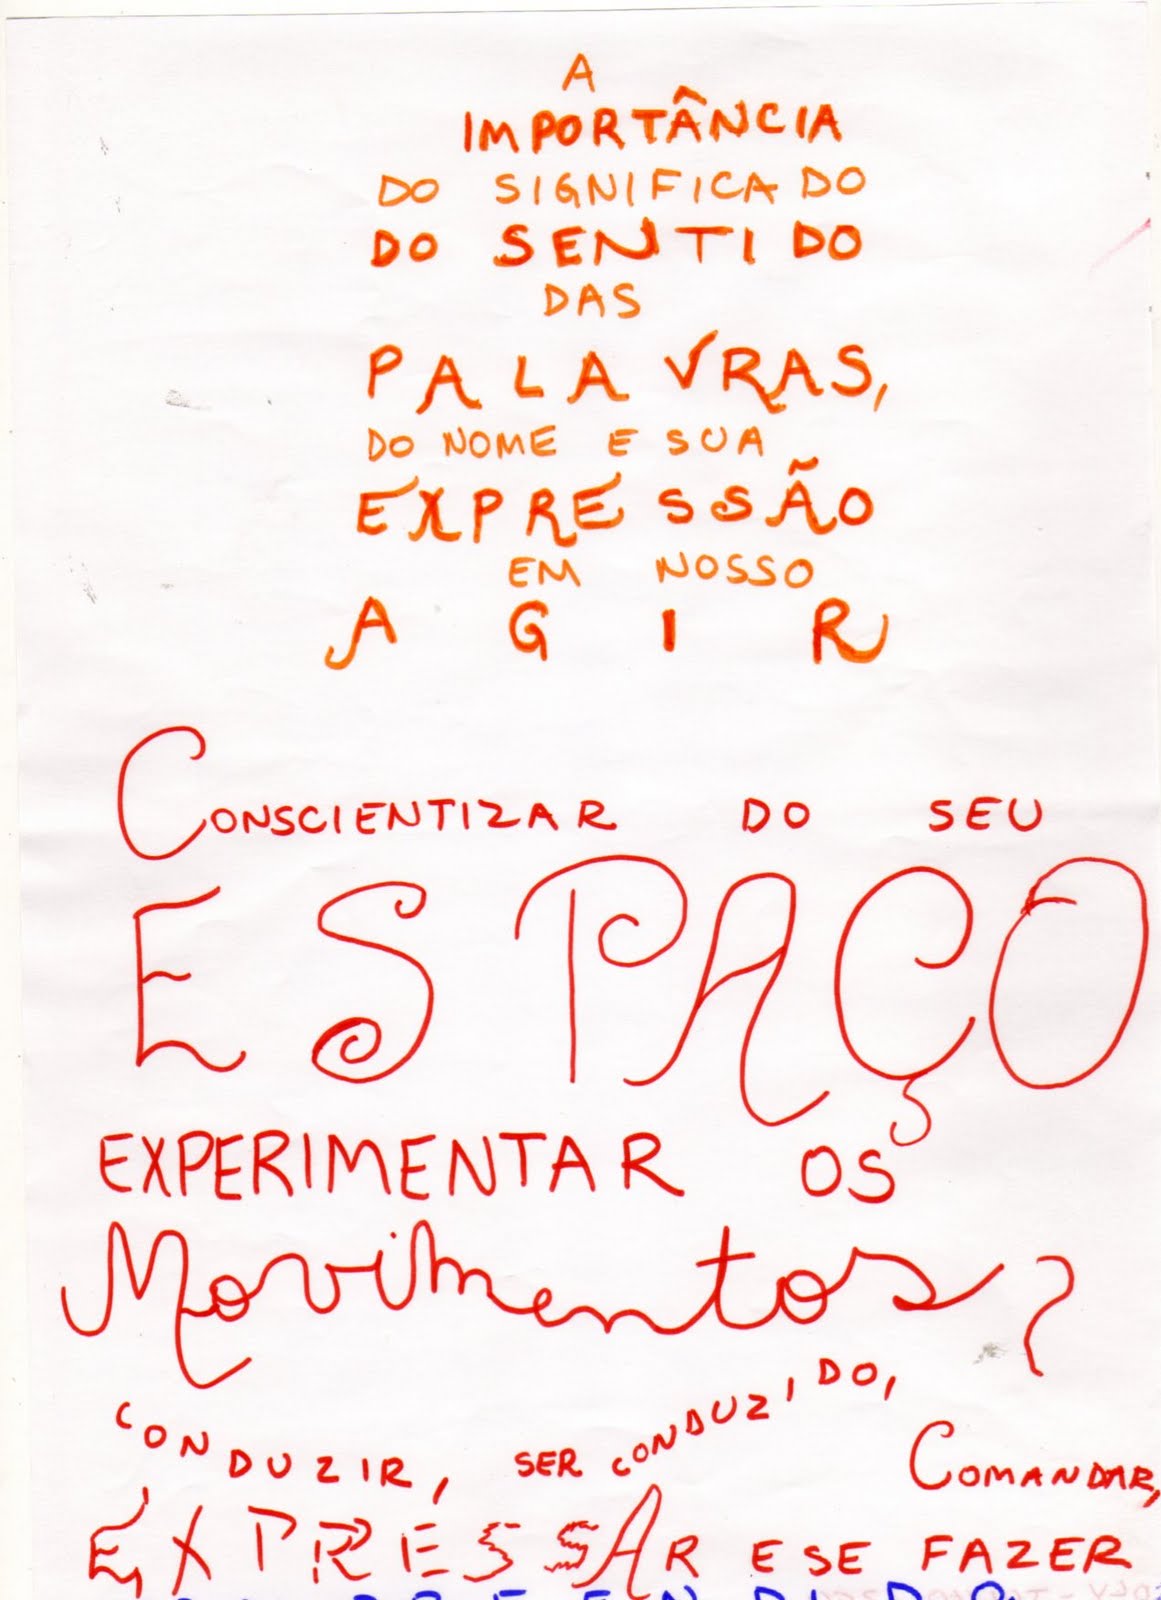 A
IMPORTÂNCIA
DO SIGNIFICADO
DO SENTIDO
DAS
PALAVRAS,
DO NOME E SUA
EXPRESSÃO
EM NOSSO
AGIR
CONSCIENTIZAR DO SEU
ESPAÇO
EXPERIMENTAR OS
Movimentos?
CONDUZIR, SER CONDUZIDO,
COMANDAR,
EXPRESSAR E SE FAZER